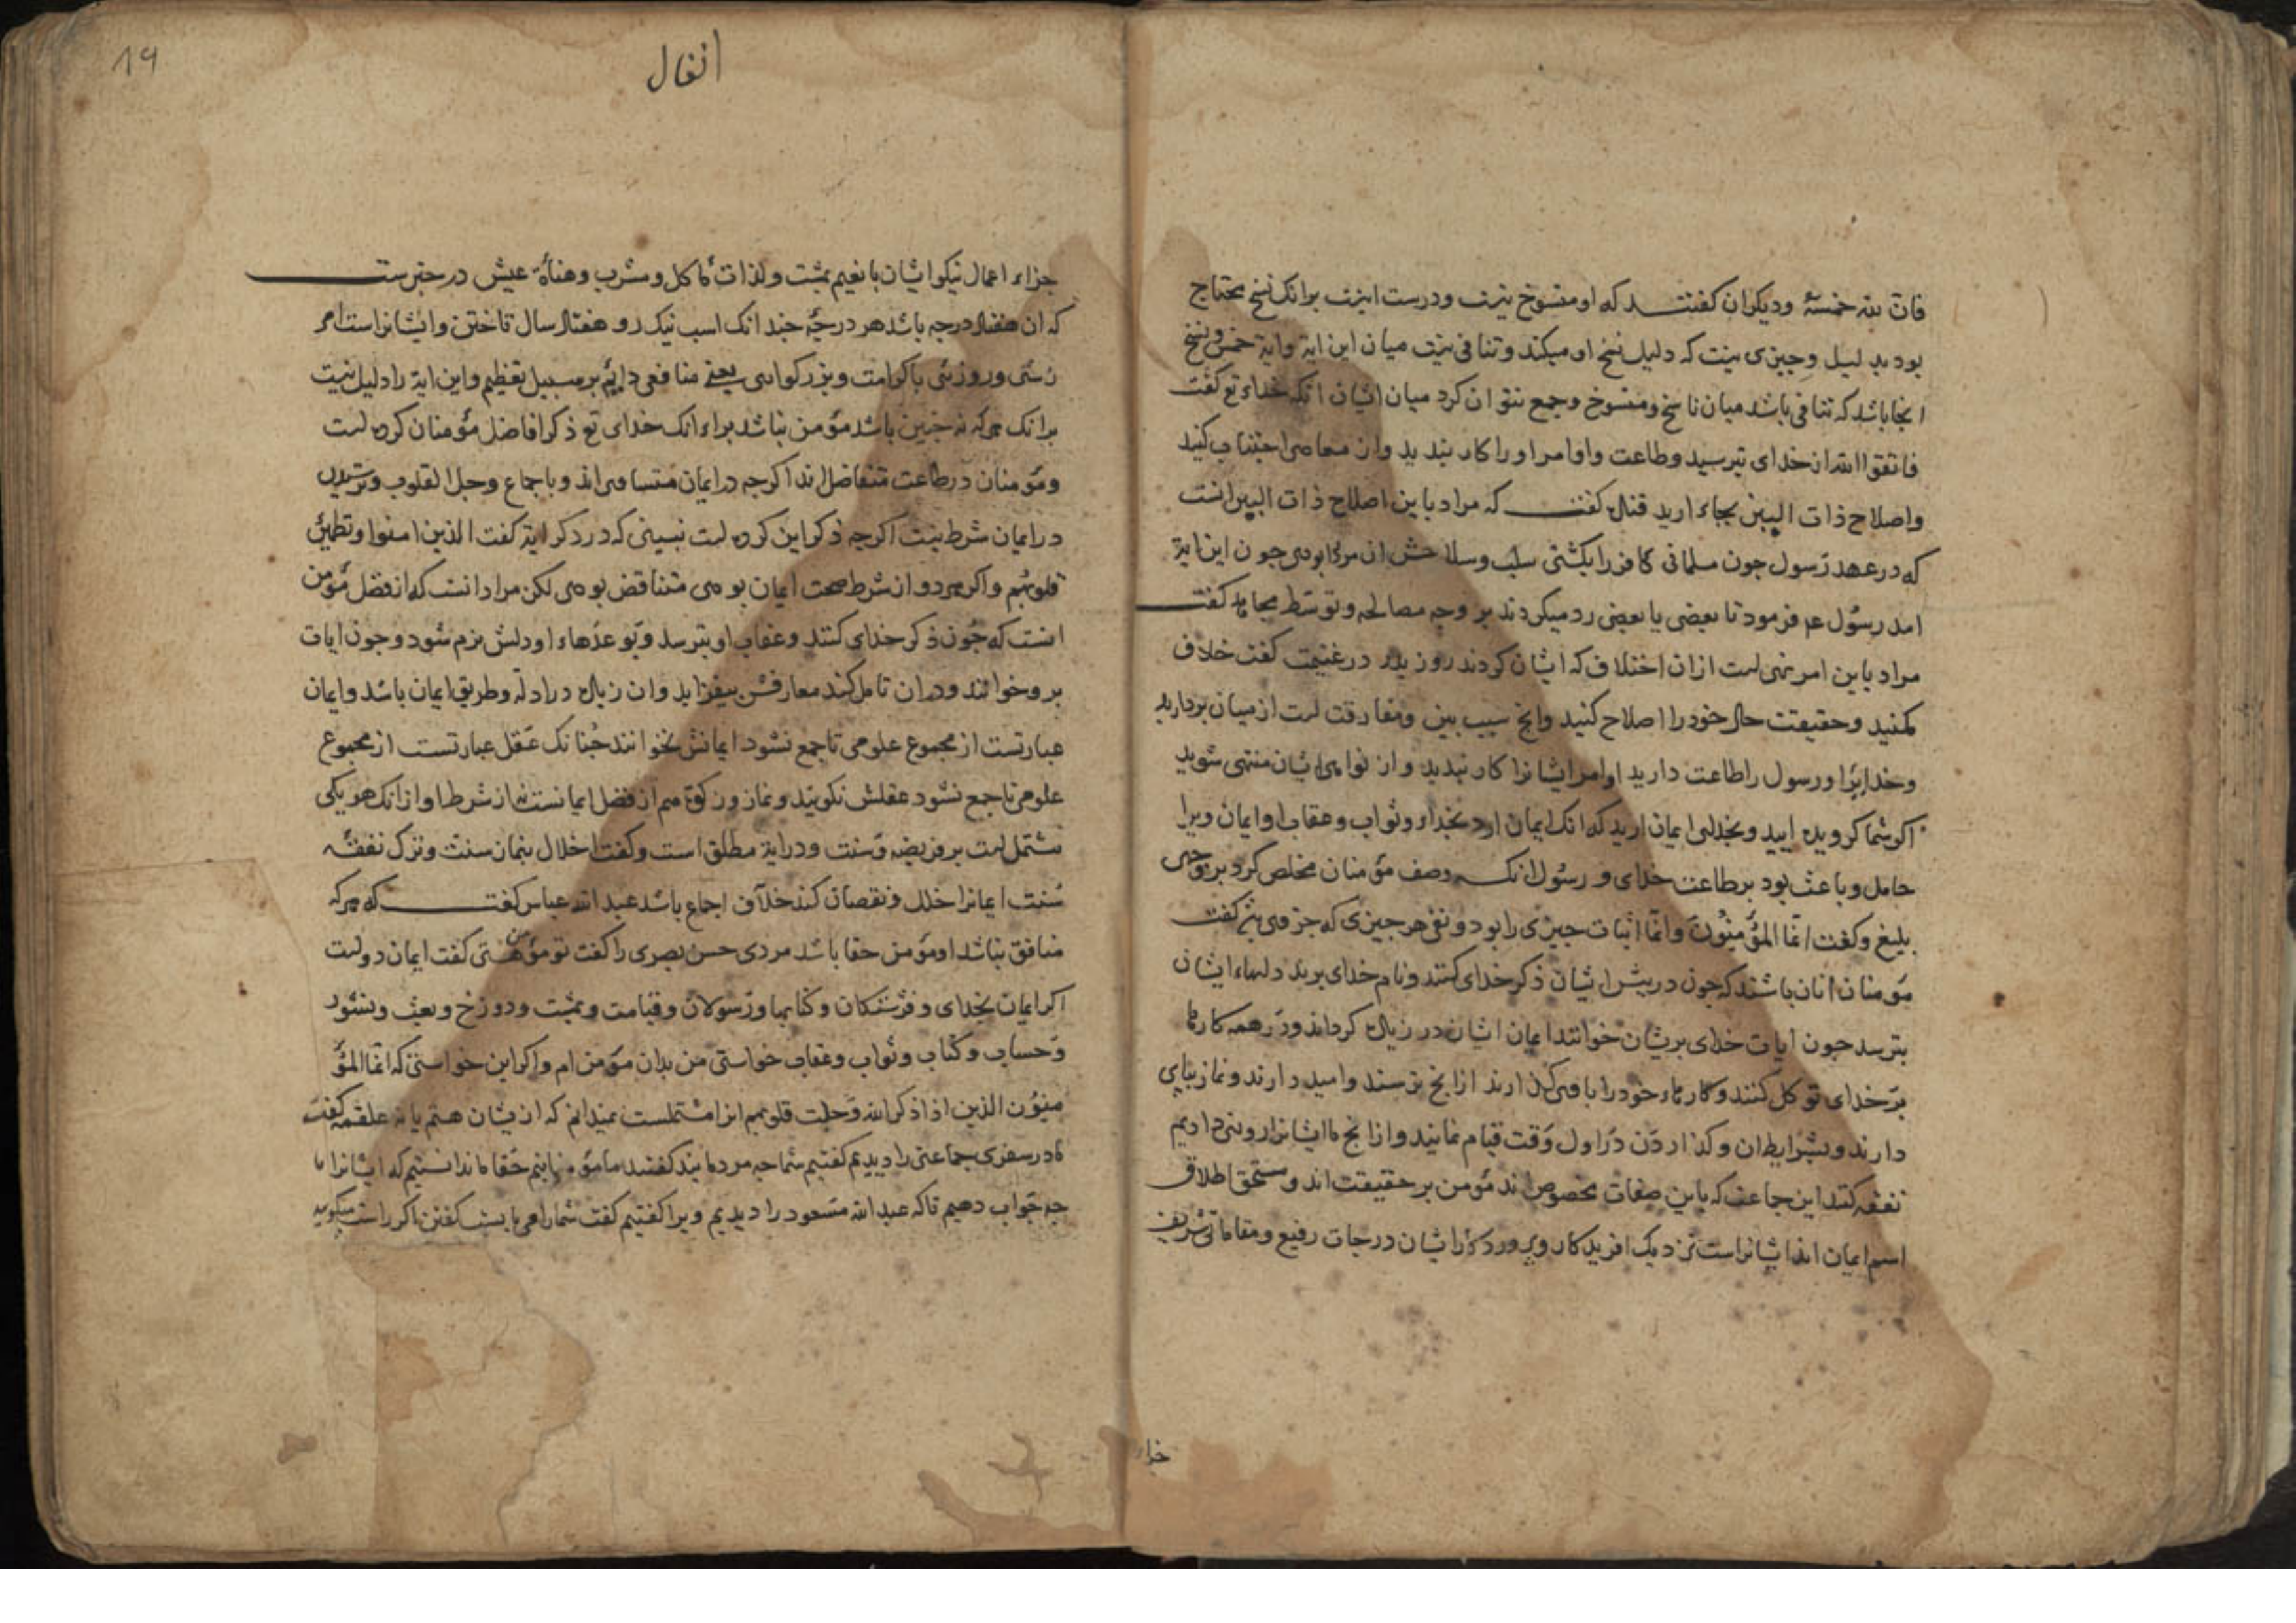 فان لله خمسهٔ ودیکران کفتند که او منسوخ نیست ودرست اینست برانک نسخ محتاج
بود بدلیل وجیزی نیست که دلیل نسخ او میکند وتنافی نیست میان این ایة وایة خمس ونسخ
انجا باشد که تنافی باشد میان ناسخ ومنسوخ وجمع نتوان کرد میان ایشان انکه خداء تع کفت
فاتقوا الله از خدای بترسید وطاعت واوامر اورا کار بندید واز معاصی اجتناب کنید
واصلاح ذات البین بجاء ارید قتاده کفت که مراد باین اصلاح ذات البین انست
که در عهد رسول جون مسلمانی کافر را بکشتی سلب وسلاحش ان مردرا بودی جون این ایة
امد رسول عم فرمود تا بعضی با بعضی رد میکردند بر وجه مصالحه وتوسط مجاهد کفت
مراد باین امر نهی است ازان اختلاف که ایشان کردند روز بدر در غنیمت کفت خلاف
مکنید وحقیقت حال خود را اصلاح کنید وانج سبب بین ومفارقت است از میان بردارید
وخدایرا ورسول را طاعت دارید اوامر ایشانرا کار بندید واز نواهی ایشان منتهی شوید
اکر شما کرویده ایید وبخدای ایمان ارید که انک ایمان ارد بخدا وثواب وعقاب او ایمان ویرا
حامل وباعث بود بر طاعت خدای ورسول انکه وصف مؤمنان مخلص کرد بر وجهی
بلیغ وکفت انما المؤمنون وانما اثبات جیزی را بود ونفی هر جیزی که جز وی بیز کفت
مؤمنان انان باشند که جون در پیش ایشان ذکر خدای کنند ونام خدای برند دلهاء ایشان
بترسد جون ایات خدای بریشان خوانند ایمان ایشان در زیاده کرداند ودر همه کارها
بر خدای توکل کنند وکارهاء خود را باوی کذارند ازانج ترسند وامید دارند ونماز بپای
دارند وبشرایط ان وکذاردن در اول وقت قیام نمایند وازانج ما ایشانرا روزی دادیم
نفقه کنند این جماعت که باین صفات مخصوص اند مؤمن بر حقیقت اند ومستحق اطلاق
اسم ایمان اند ایشانراست نزدیک افریدکار وپروردکار ایشان درجات رفیع ومقاماتی شریف
جزاء
انفال
19
جزاء اعمال نیکو ایشان با نعیم بهشت ولذات ماکل ومشرب وهناءة عیش در خبرست
که ان هفتاد درجه باشد هر درجهٔ جندانک اسب نیک رو هفتاد سال تاختن وایشانراست امر
زشی وروزئی باکرامت وبزرکواری یعنی منافعی دایم بر سبیل تعظیم واین ایة را دلیل نیست
برانک هرکه نه جنین باشد مؤمن نباشد براء انک خدای تع ذکر افاضل مؤمنان کرده است
ومؤمنان در طاعت متفاضل اند اکرجه در ایمان متساوی اند وباجماع وجل القلوب وترسیدن
در ایمان شرط نیست اکرجه ذکر این کرده است نبینی که در دکر ایة کفت الذین امنوا وتطمئن
قلوبهم واکر هر دو ان شرط صحت ایمان بودی متناقض بودی لکن مراد انست که از فضل مؤمن
انست که جون ذکر خدای کنند وعقاب او بترسد وبوعدهاء او دلش نرم شود وجون ایات
برو خوانند ودران تامل کند معارفش بیفزاید وان زیاده در ادله وطریق ایمان باشد وایمان
عبارتست از مجموع علومی تا جمع نشود ایمانش نخوانند جنانک عقل عبارتست از مجموع
علومی تا جمع نشود عقلش نکویند ونماز وزکوة هم از فضل ایمانست نه از شرط او ازانک هر یکی
مشتمل است بر فریضه وسنت ودر ایة مطلق است وکفت اخلال بنمان سنت وترک نفقهٔ
سنت ایمانرا خلل ونقصان کند خلاف اجماع باشد عبد الله عباس کفت که هرکه
منافق نباشد او مؤمن حقا باشد مردی حسن بصری را کفت تو مؤمن هستی کفت ایمان دواست
اکر ایمان بخدای وفرشتکان وکتابها ورسولان وقیامت وبهشت ودوزخ وبعث ونشور
وحساب وکتاب وثواب وعقاب خواستی من بدان مؤمن ام واکر این خواستی که انما المؤ
منون الذین اذا ذکر الله وجلت قلوبهم انرا مشتملست نمیدانم که ازیشان هستم یا نه علقمه کفت
ما در سفری جماعتی را دیدیم کفتیم شما جه مردمانید کفتند ما مؤمنانیم حقا ما ندانستیم که ایشانرا ما
جه جواب دهیم تاکه عبد الله مسعود را دیدیم ویرا کفتیم کفت شمارا می بایست کفتن اکر راست میکویید